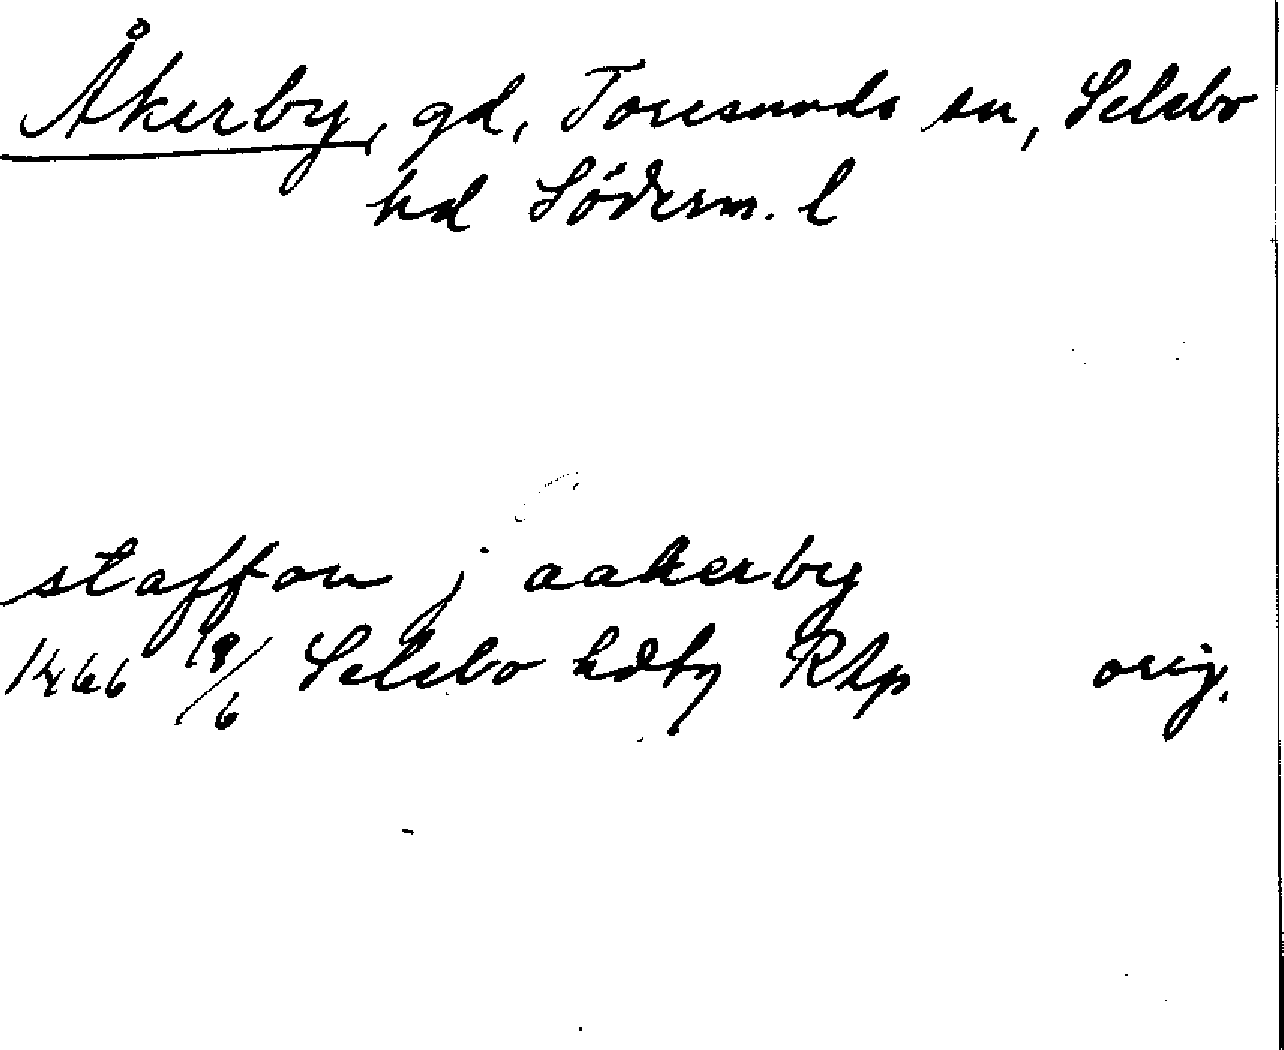 Åkerby, gd, Toresunds sn, Selebo
hd Söderm. l
staffan j aakerby
1466 18/6 Selebo hdtg RAp orig.